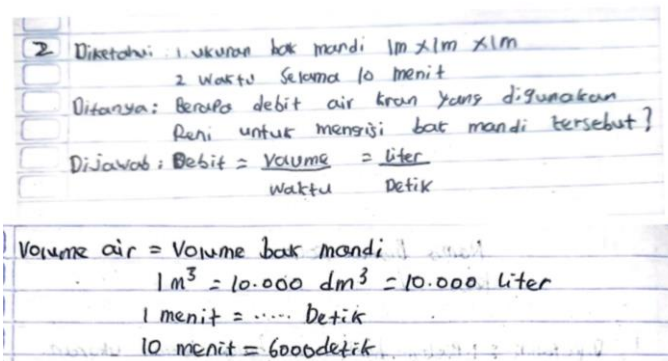 2 Diketahui : 1. ukuran bak mandi 1m x 1m x 1m
2 waktu selama 10 menit
Ditanya : Berapa debit air kran yang digunakan
Reni untuk mengisi bak mandi tersebut?
Dijawab : Debit = Volume = liter
waktu Detik
Volume air = Volume bak mandi
1 m³ = 10.000 dm³ = 10.000 liter
1 menit = ..... Detik
10 menit = 6000 detik